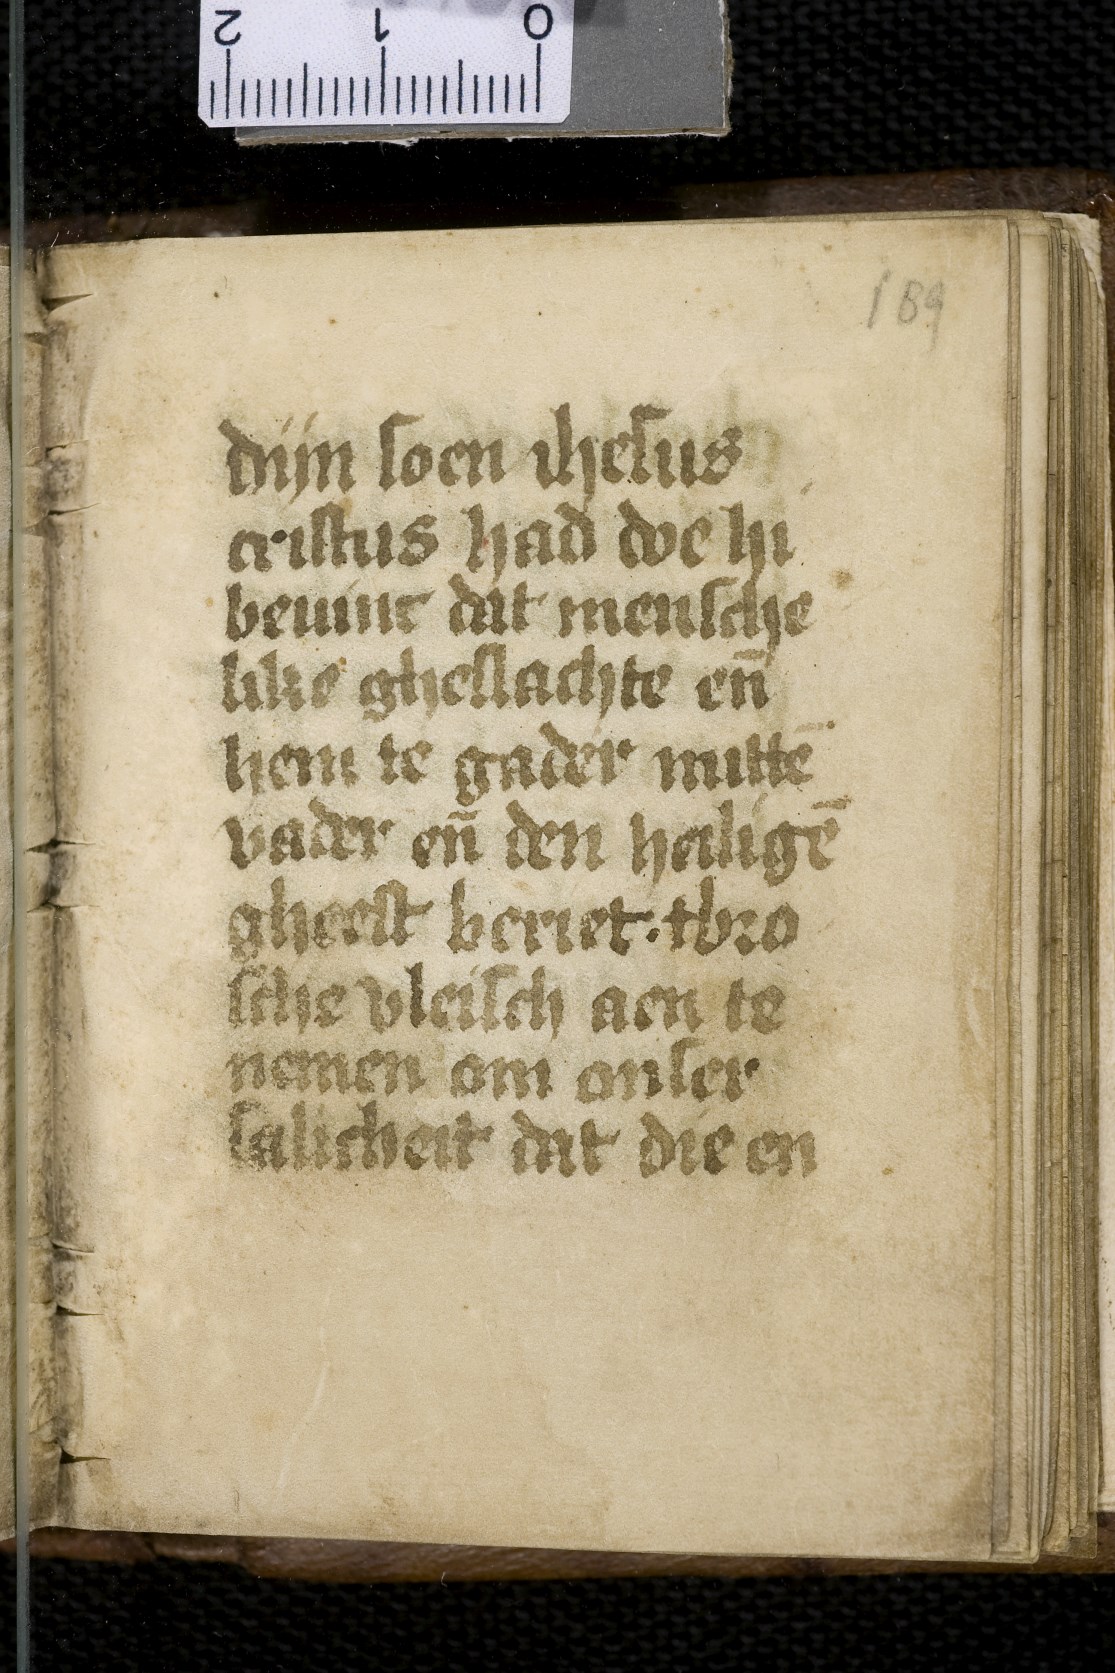 2 1 0
189
dijn soen ihesus
cristus had doe hi
bemint dat mensche
like gheslachte en̄
hem te gader mittē
vader en̄ den heiligē
gheest beriet. tbro
sche vleisch aen te
nemen om onser
salicheit dat die en